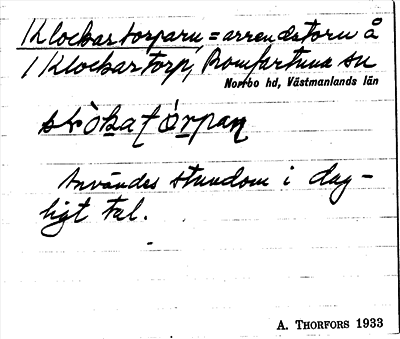 Klockartorparn, = arrendetorn å
1 Klockartorp, Romfartuna sn
Norrbo hd, Västmanlands län
Användes stundom i dag-
ligt tal.
A. THORFORS 1933